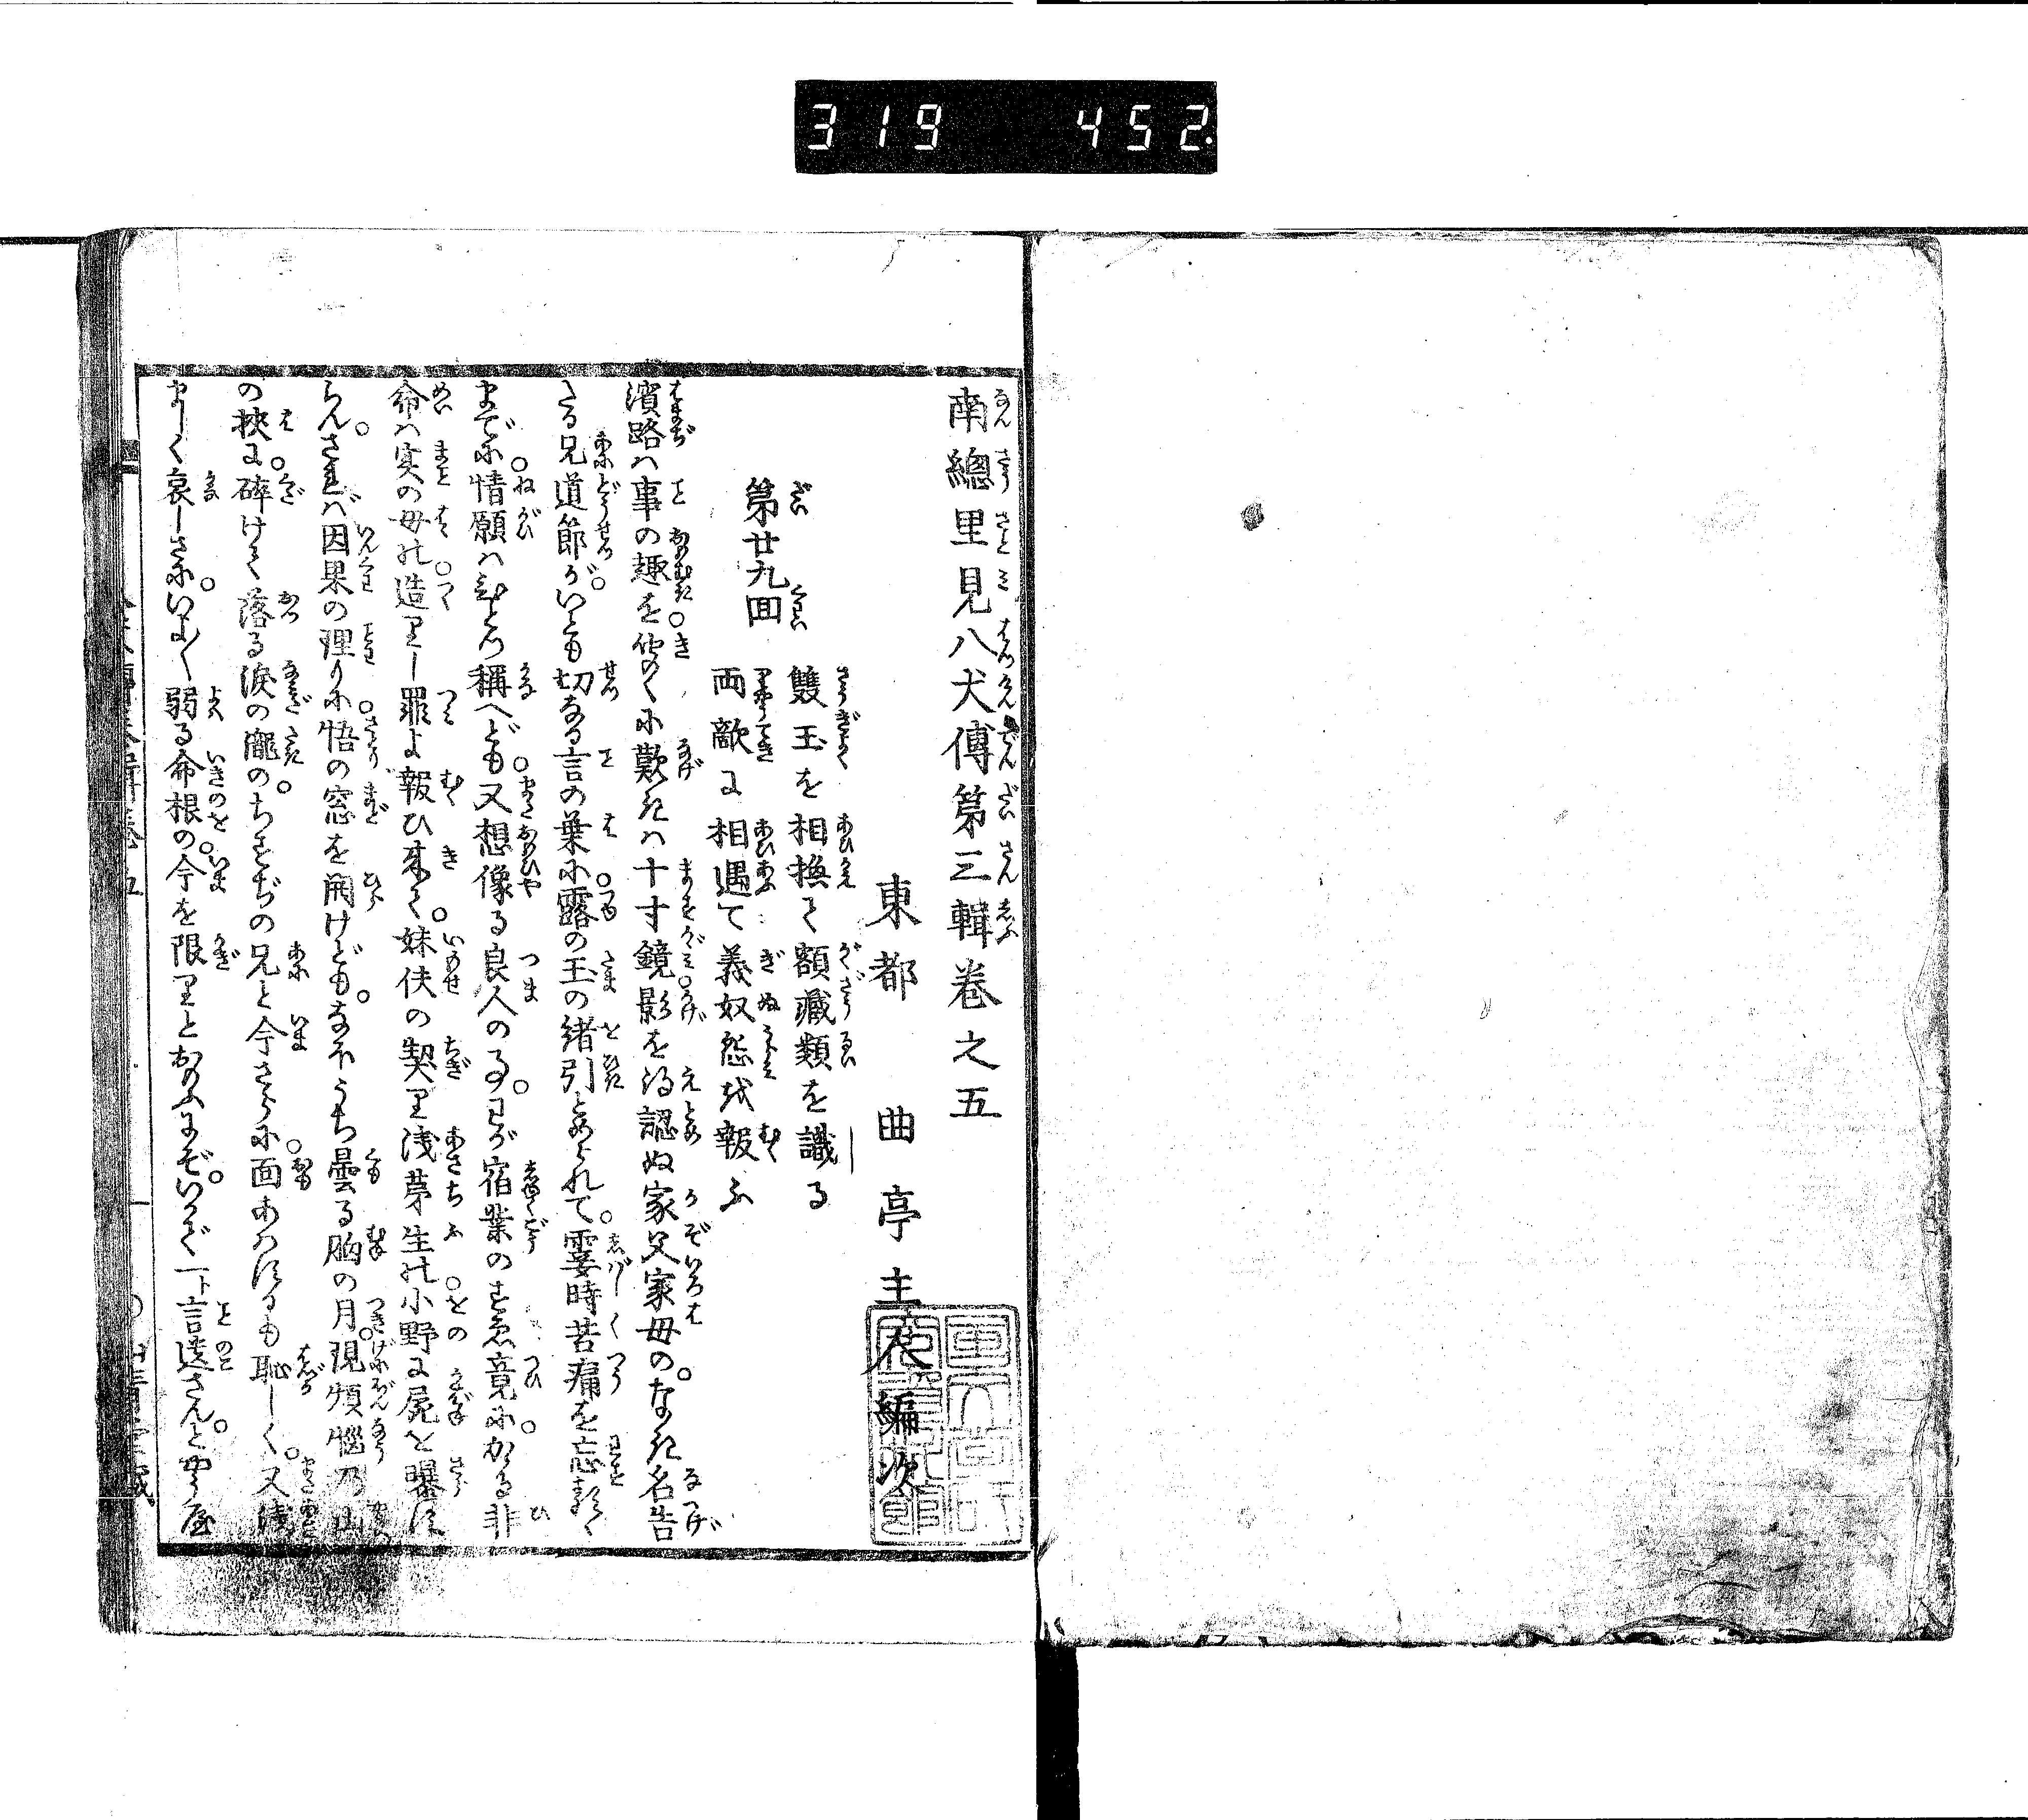 319 452.
南總里見八犬傳第三輯卷之五
東都 曲亭主人編次
第廿九回
雙玉を相換て額藏類を識る
両敵に相遇て義奴怨を報ふ
濱路は事の趣を仄々に歎きは十寸鏡影を得認ぬ家父家母の。なき名告
さる兄道節が。いとも切なる言の葉に露の玉の緒引とめられて。霎時苦痛を忘るゝ
までに情願はひとつ稱へども又想像る良人の事。わが宿業のすゑ竟にかゝる非
命は実の母の造りし罪よ報ひ来て。妹伕の契り浅茅生の小野に屍を曝す
らん。されば因果の理りに悟の窓を開けども。なほうち曇る胸の月。現煩悩の山
の挾に。碎けて落る涙の瀧の。ちすぢの兄と今さらに面あはするも恥しく。又浅
ましく哀しさに。いよ〳〵弱る命根の。今を限りとおもふにぞ。いかで一ト言遺さんとやう屋